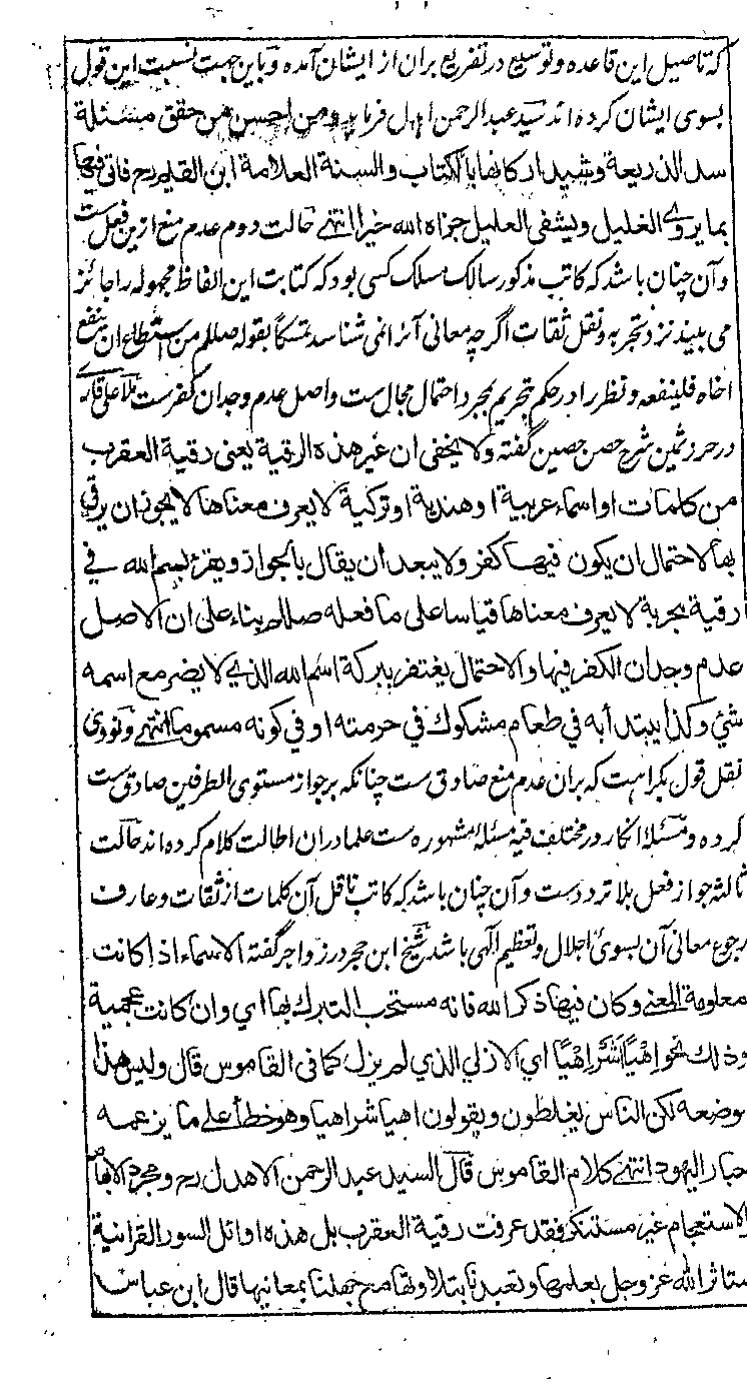 که تاصیل این قاعده و توسیع در تفریع بران از ایشان آمده و باین جهت نسبت این قول
بسوی ایشان کرده اند سید عبدالرحمن اهدل فرماید ومن احسن من حقق مسئلة
سد الذریعة وشید ارکانها بالکتاب والسنة العلامة ابن القیم رح فاتی فیها
بما یروے الغلیل ویشفی العلیل جزاه الله خیرا انتهے حالت دوم عدم منع ازین فعل ست
و آن چنان باشد که کاتب مذکور سالک مسلک کسی بود که کتابت این الفاظ مجهوله را جائز
می بیند نزد تجربه و نقل ثقات اگرچه معانی آنرا نمی شناسد تمسکاً بقوله صللم من استطاع ان ینفع
اخاه فلینفعه و نظر را در حکم تحریم بمجرد احتمال مجال ست واصل عدم وجدان کفرست ملا علی قارے
در حرز ثمین شرح حصن حصین گفته ولا یخفی ان غیر هذه الرقیة یعنی رقیة العقرب
من کلمات او اسماء عربیة او هندیة او ترکیة لا یعرف معناها لا یجوز ان یرقی
بها لاحتمال ان یکون فیها کفر ولا یبعد ان یقال بالجواز ویقرء بسم الله فے
رقیة مجربة لا یعرف معناها قیاسا علی ما فعله صللم بناء علی ان الاصل
عدم وجدان الکفر فیها والاحتمال یغتفر ببرکة اسم الله الذے لا یضر مع اسمه
شئ وکذا یبتدأ به فی طعام مشکوک فی حرمته او فی کونه مسموما انتهے و نووی
نقل قول بکراهت که بران عدم منع صادق ست چنانکه بر جواز مستوی الطرفین صادق ست
کرده و مسئلهٔ انکار در مختلف فیه مسئلهٔ مشهوره ست علما دران اطالت کلام کرده اند حالت
ثالثه جواز فعل بلا تردد ست و آن چنان باشد که کاتب ناقل آن کلمات از ثقات و عارف
رجوع معانی آن بسوئ اجلال و تعظیم الهی باشد شیخ ابن حجر در زواجر گفته الاسماء اذا کانت
معلومة المعنے وکان فیها ذکر الله فانه مستحب التبرک بها ای وان کانت عجمیة
وذلک نحو اهیا اشراهیا ای الازلی الذی لم یزل کما فی القاموس قال ولیس هذا
موضعه لکن الناس یغلطون ویقولون اهیا شراهیا وهو خطأ علے ما یزعمه
حبار الیهود انتهے کلام القاموس قال السید عبد الرحمن الاهدل رح ومجرد الابهام
الاستعجام غیر مستنکر فقد عرفت رقیة العقرب بل هذه اوائل السور القرآنیة
ستاثر الله عز وجل بعلمها وتعبدنا بتلاوتها مع جهلنا بمعانیها قال ابن عباس